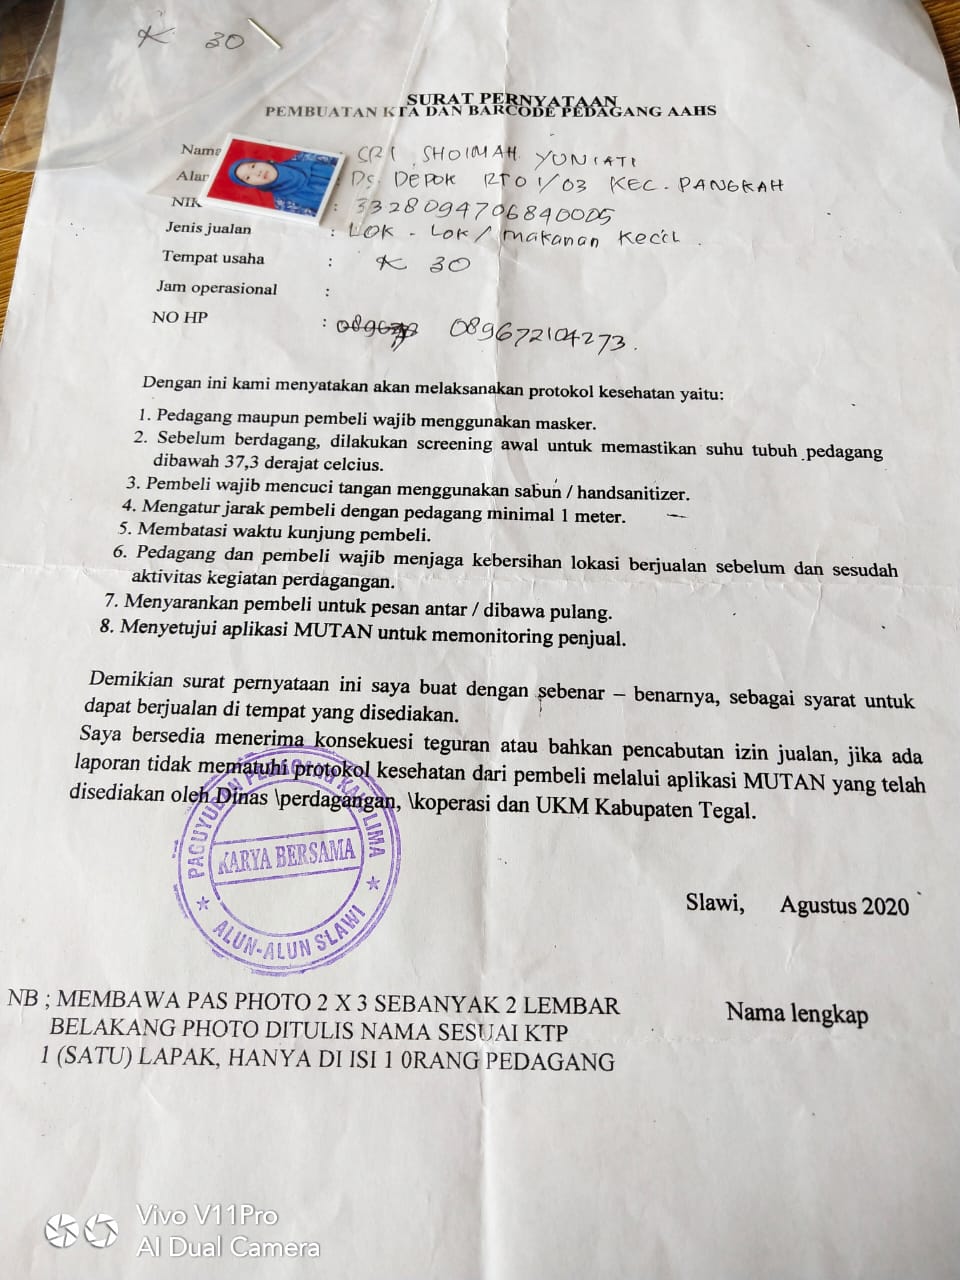 K 30
SURAT PERNYATAAN
PEMBUATAN KTA DAN BARCODE PEDAGANG AAHS
Nama SRI SHOIMAH YUNIATI
Alar : Ds. DEPOK RT01/03 KEC. PANGKAH
NIK : 3328094706840005
Jenis jualan : LOK - LOK / makanan kecil .
Tempat usaha : K 30
Jam operasional :
NO HP : 089672104273.
Dengan ini kami menyatakan akan melaksanakan protokol kesehatan yaitu:
1. Pedagang maupun pembeli wajib menggunakan masker.
2. Sebelum berdagang, dilakukan screening awal untuk memastikan suhu tubuh pedagang
dibawah 37,3 derajat celcius.
3. Pembeli wajib mencuci tangan menggunakan sabun / handsanitizer.
4. Mengatur jarak pembeli dengan pedagang minimal 1 meter.
5. Membatasi waktu kunjung pembeli.
6. Pedagang dan pembeli wajib menjaga kebersihan lokasi berjualan sebelum dan sesudah
aktivitas kegiatan perdagangan.
7. Menyarankan pembeli untuk pesan antar / dibawa pulang.
8. Menyetujui aplikasi MUTAN untuk memonitoring penjual.
Demikian surat pernyataan ini saya buat dengan sebenar – benarnya, sebagai syarat untuk
dapat berjualan di tempat yang disediakan.
Saya bersedia menerima konsekuesi teguran atau bahkan pencabutan izin jualan, jika ada
laporan tidak mematuhi protokol kesehatan dari pembeli melalui aplikasi MUTAN yang telah
disediakan oleh Dinas \perdagangan, \koperasi dan UKM Kabupaten Tegal.
PAGUYUBAN PEDAGANG KAKI LIMA
KARYA BERSAMA
ALUN-ALUN SLAWI
Slawi, Agustus 2020
NB ; MEMBAWA PAS PHOTO 2 X 3 SEBANYAK 2 LEMBAR
BELAKANG PHOTO DITULIS NAMA SESUAI KTP
1 (SATU) LAPAK, HANYA DI ISI 1 0RANG PEDAGANG
Nama lengkap
Vivo V11Pro
AI Dual Camera